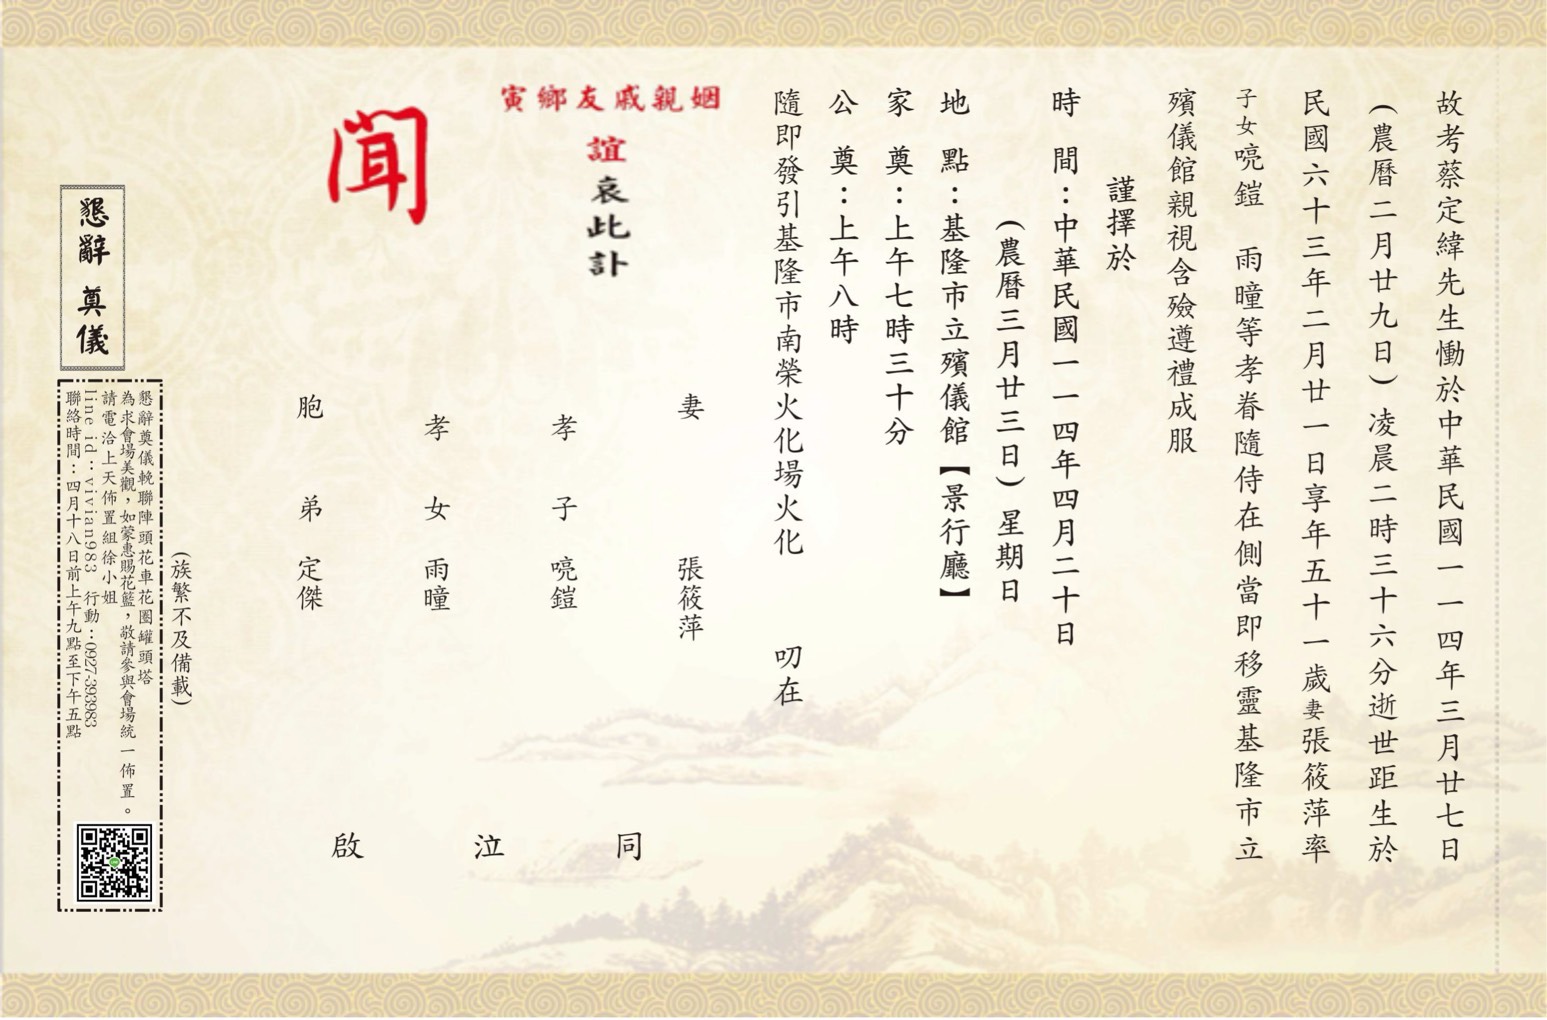 故考蔡定緯先生慟於中華民國一一四年三月廿七日
(農曆二月廿九日)凌晨二時三十六分逝世距生於
民國六十三年二月廿一日享年五十一歲妻張筱萍率
子女喨鎧 雨曈等孝眷隨侍在側當即移靈基隆市立
殯儀館親視含殮遵禮成服
謹擇於
時 間:中華民國一一四年四月二十日
(農曆三月廿三日)星期日
地 點:基隆市立殯儀館【景行廳】
家 奠:上午七時三十分
公 奠:上午八時
隨即發引基隆市南榮火化場火化 叨在
姻親戚友鄉寅
誼哀此訃
聞
妻 張筱萍
孝 子 喨鎧
孝 女 雨曈
胞 弟 定傑
同 泣 啟
(族繁不及備載)
懇辭 奠儀
懇辭奠儀輓聯陣頭花車花圈罐頭塔
為求會場美觀,如蒙惠賜花籃,敬請參與會場統一佈置。
請電洽上天佈置組徐小姐
line id:vivian983 行動:0927-393983
聯絡時間:四月十八日前上午九點至下午五點